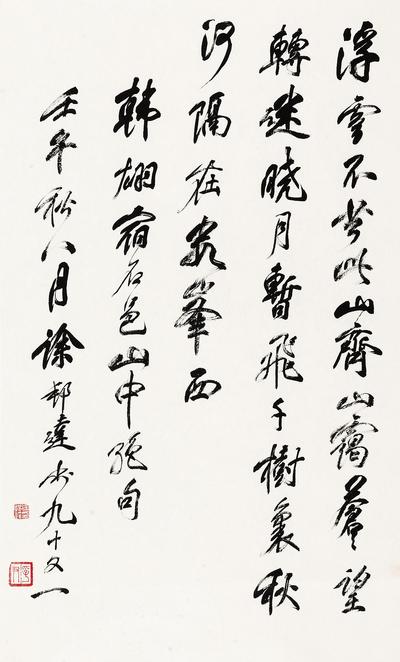 浮雲不共此山齊山靄蒼々望
轉迷曉月暫飛千樹裏秋
河隔在數峯西
韩翃宿石邑山中絶句
壬午秋八月徐邦達九十又一